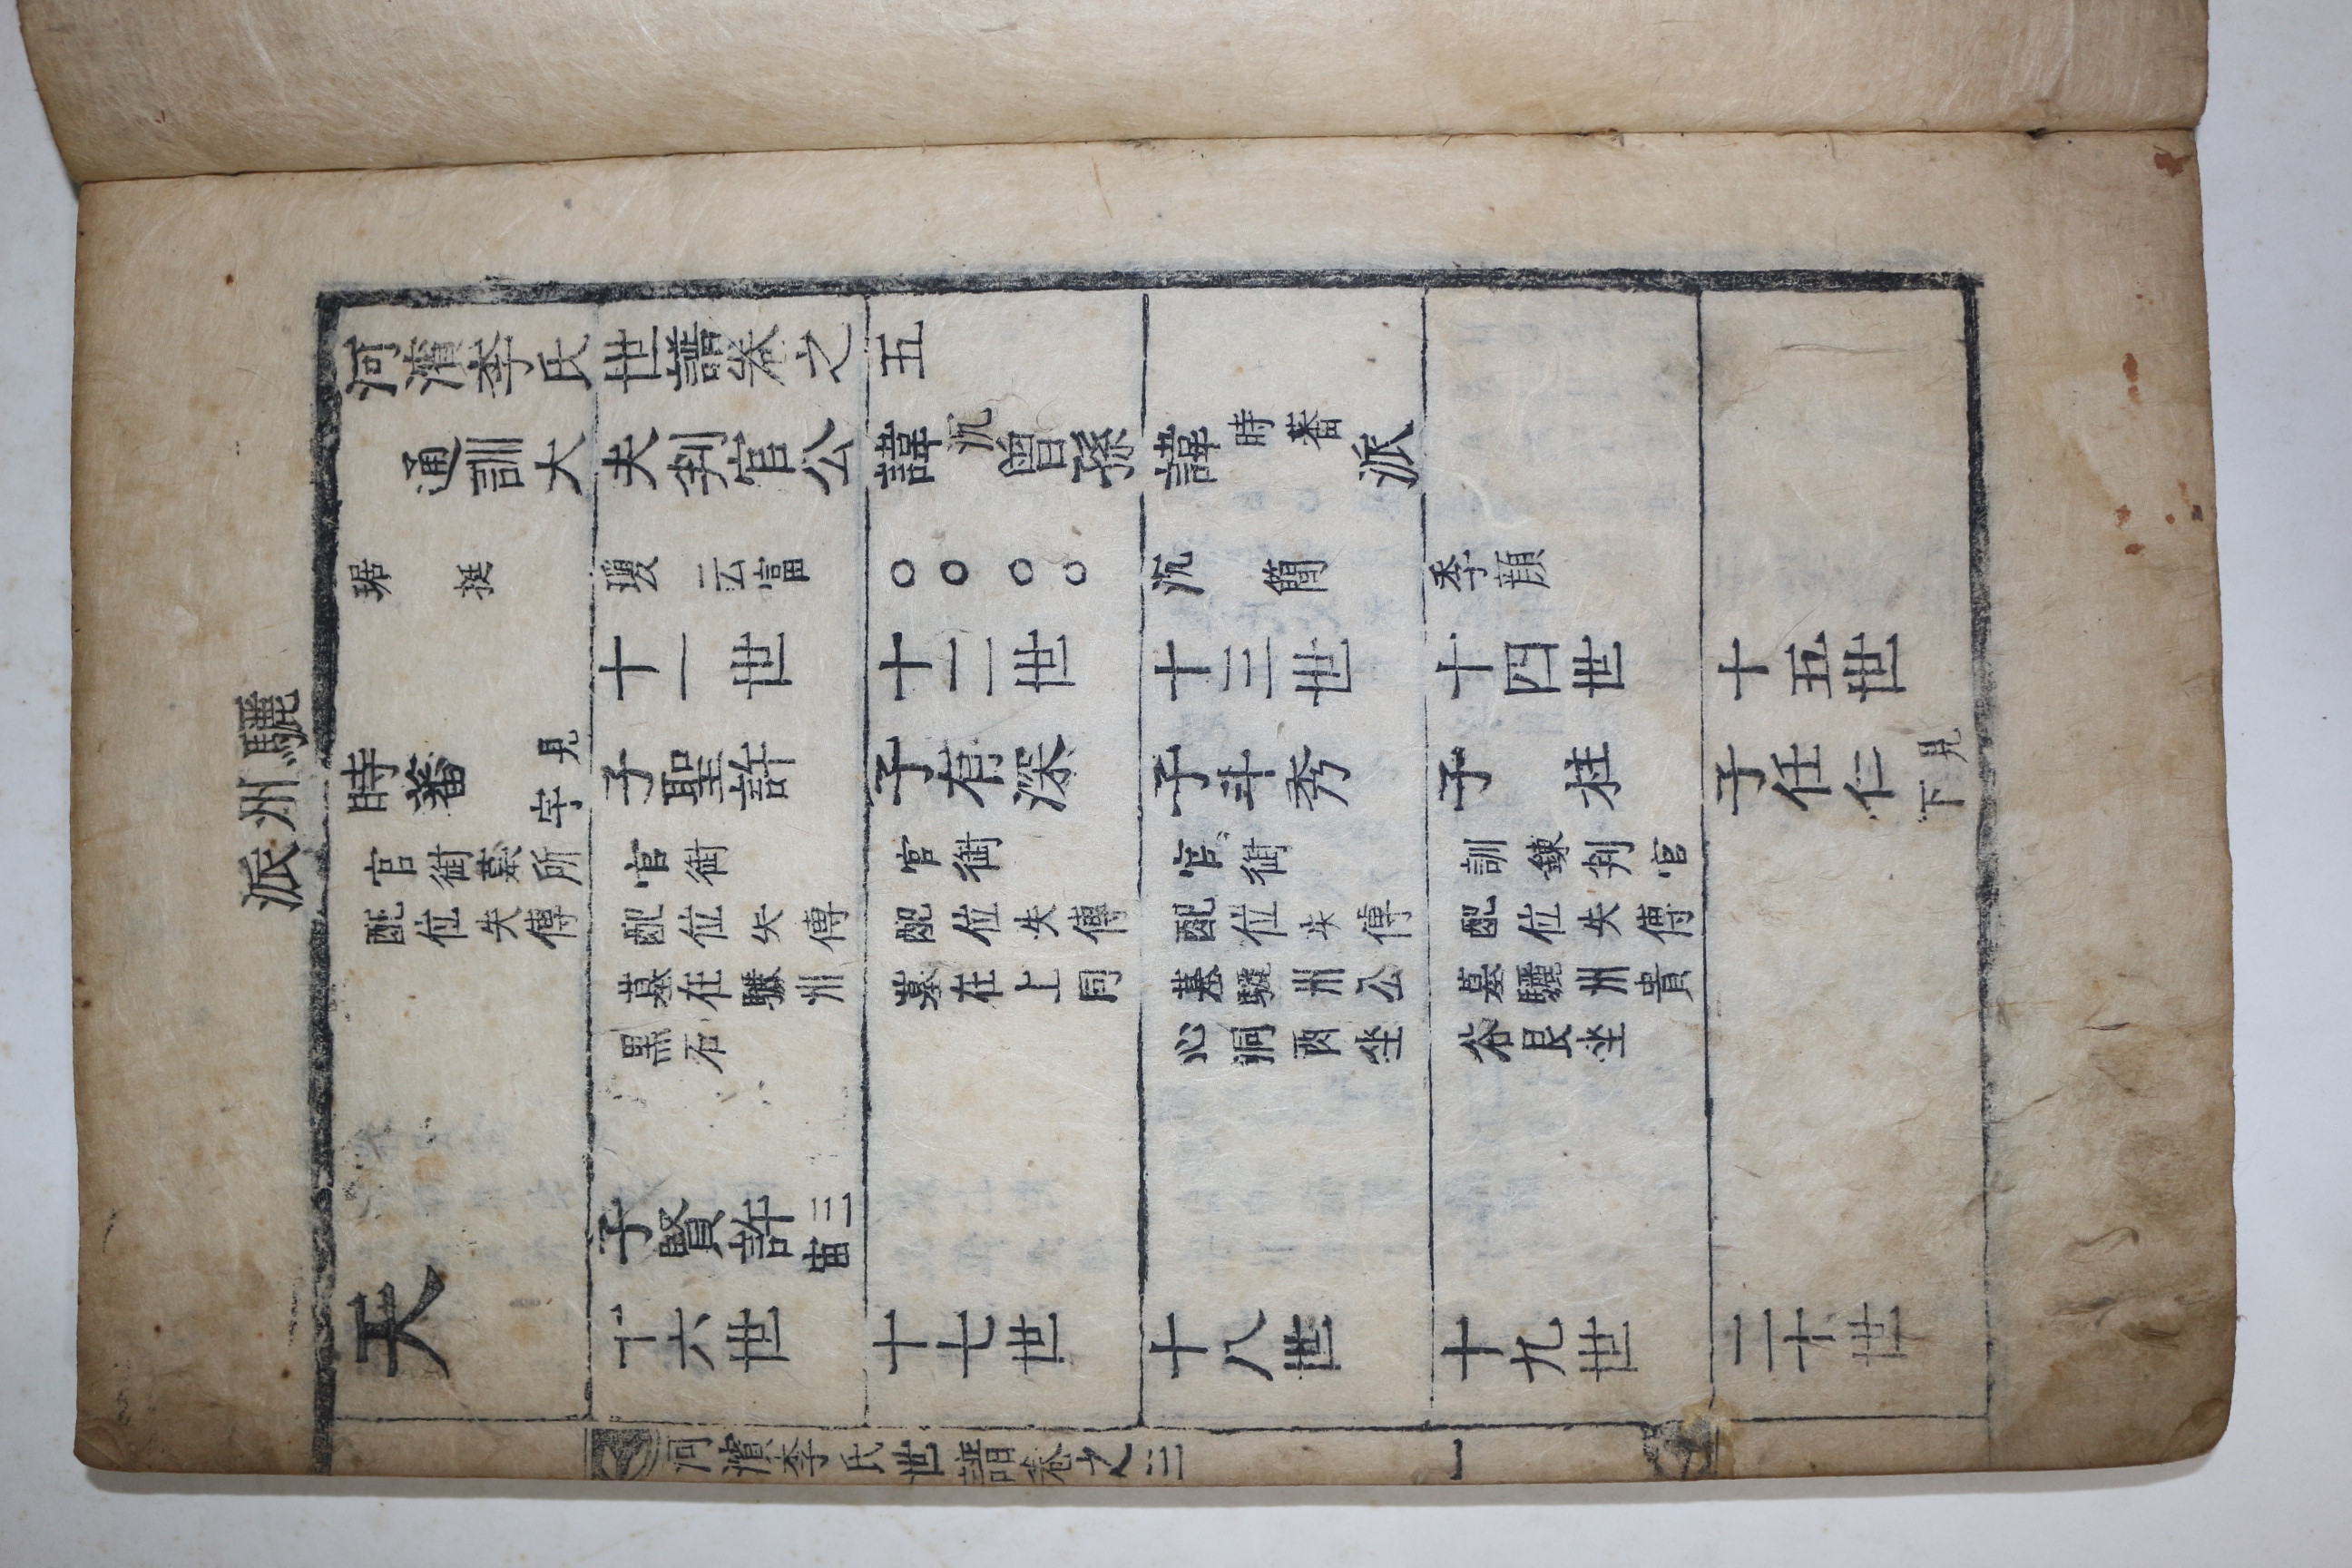 驪州派
河濱李氏世譜卷之五
通訓大夫判官公諱沉曾孫諱時蕃派
琚 挺 瓊 云富 ○○○○ 沉 簡 季顔
十一世 十二世 十三世 十四世 十五世
時蕃 見宇
官銜墓所
配位失傳
子聖許
官銜
配位失傳
墓在驪州
黑石
子有深
官銜
配位失傳
墓在上同
子斗秀
官銜
配位失傳
墓驪州公
心洞酉坐
子 柱
訓鍊判官
配位失傳
墓驪州貴
谷艮坐
子任仁 見下
子賢許 三宙
天 十六世 十七世 十八世 十九世 二十世
河濱李氏世譜卷之三 一